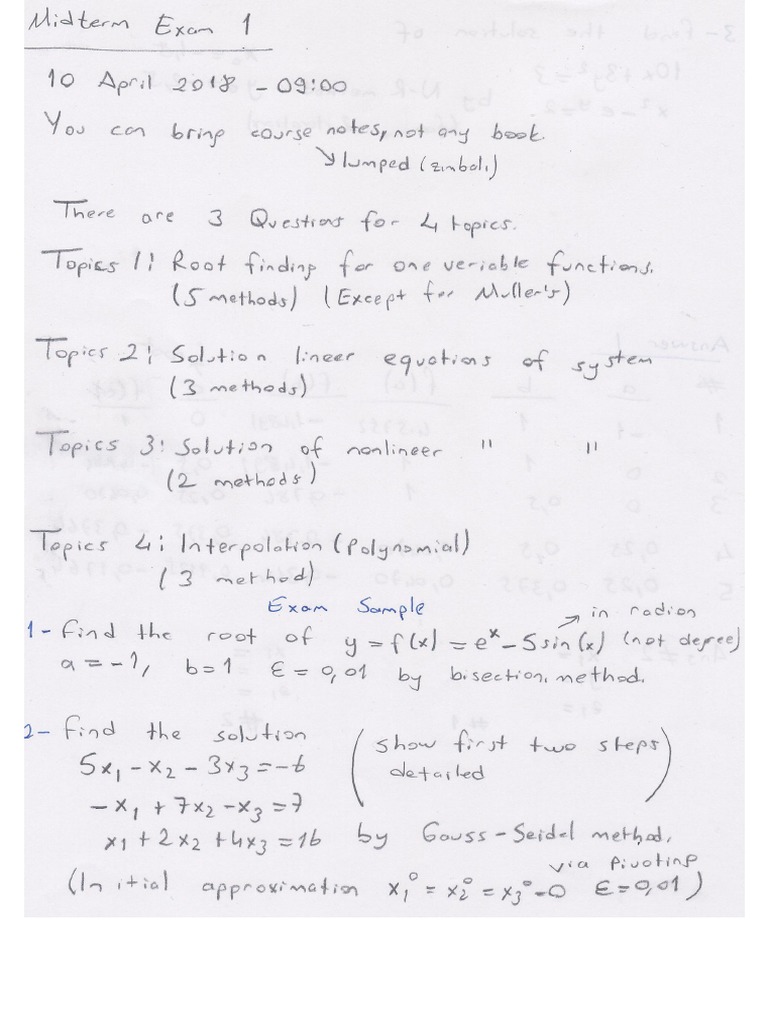 Midterm Exam 1
10 April 2018 - 09:00
You can bring course notes, not any book.
↘ lumped (zımbalı)
There are 3 Questions for 4 topics.
Topics 1: Root finding for one veriable functions.
(5 methods) (Except for Muller's)
Topics 2: Solution lineer equations of system
(3 methods)
Topics 3: Solution of nonlineer " "
(2 methods)
Topics 4: Interpolation (Polynomial)
(3 method)
Exam Sample
1- Find the root of y = f(x) = eˣ - 5 sin(x) ↗ in radian (not degree)
a = -1, b = 1 ε = 0,01 by bisection method.
2- Find the solution (show first two steps
5x₁ - x₂ - 3x₃ = -6 detailed)
-x₁ + 7x₂ - x₃ = 7
x₁ + 2x₂ + 4x₃ = 16 by Gauss-Seidel method,
via pivoting
(Initial approximation x₁⁰ = x₂⁰ = x₃⁰ = 0 ε = 0,01)